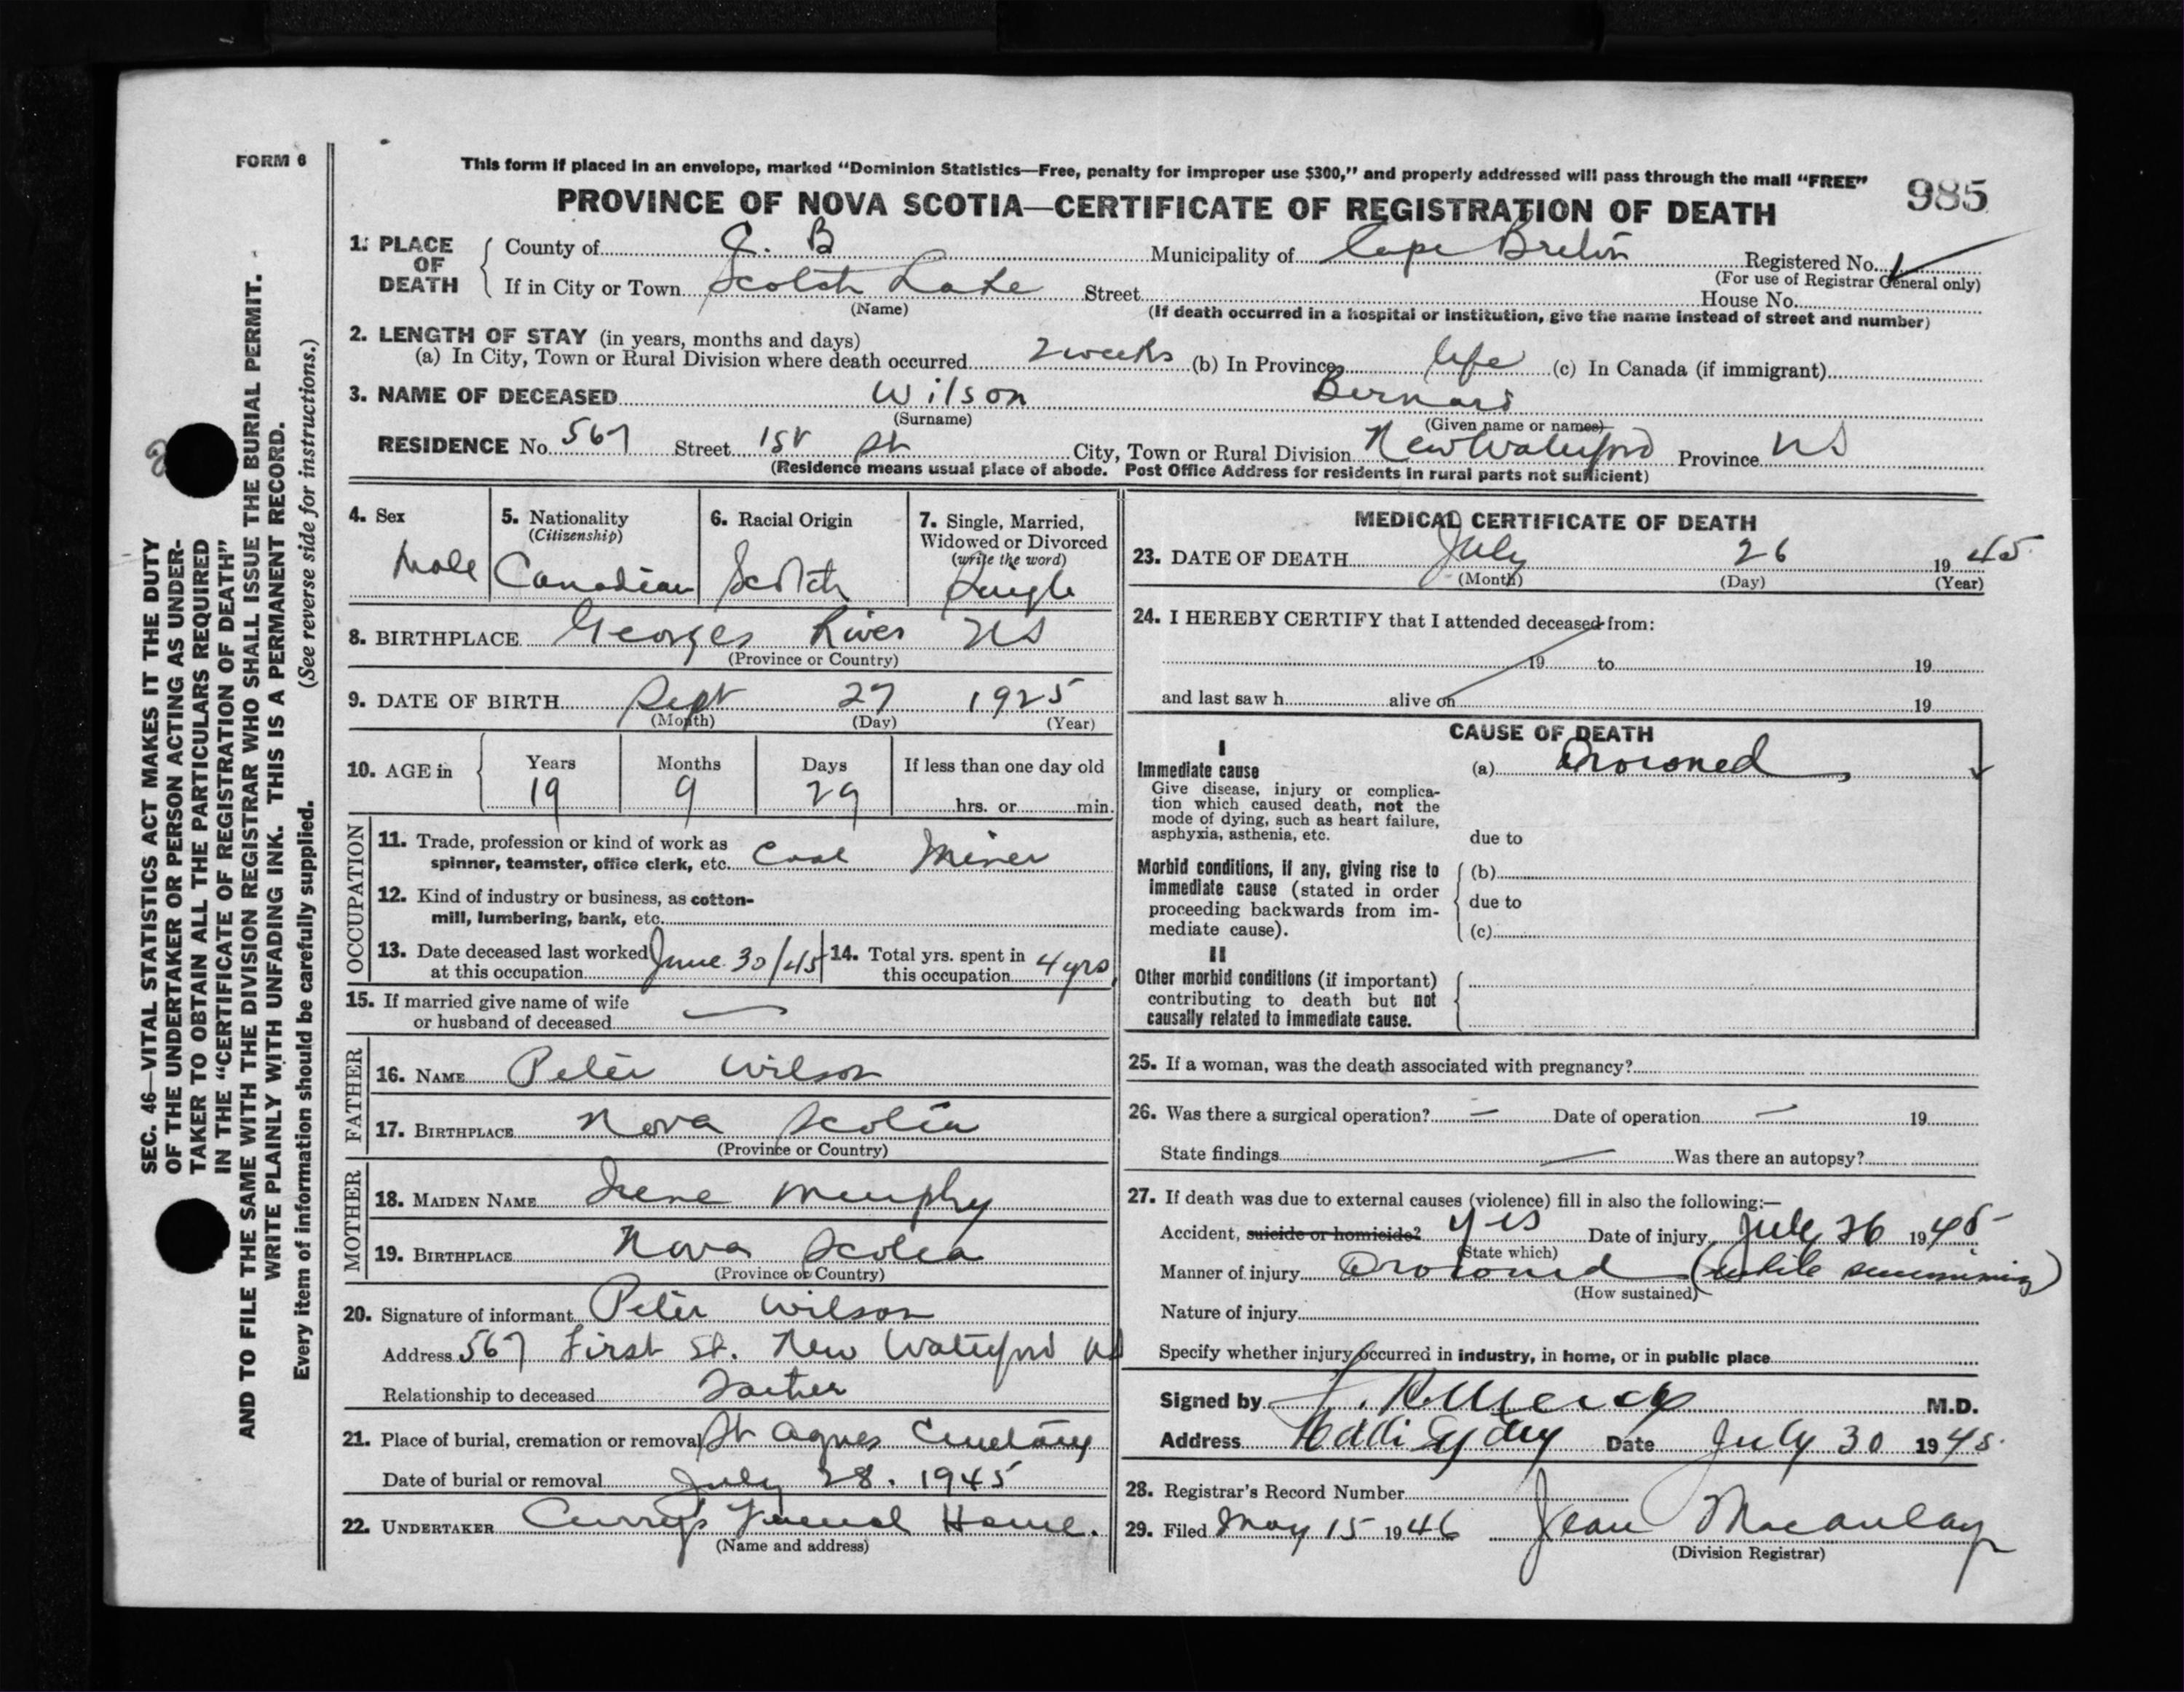 FORM 6
This form if placed in an envelope, marked “Dominion Statistics—Free, penalty for improper use $300,” and properly addressed will pass through the mail “FREE”
985
PROVINCE OF NOVA SCOTIA—CERTIFICATE OF REGISTRATION OF DEATH
1. PLACE OF DEATH
County of C. B Municipality of Cape Breton Registered No.
(For use of Registrar General only)
If in City or Town Scotch Lake Street House No.
(Name)
(If death occurred in a hospital or institution, give the name instead of street and number)
2. LENGTH OF STAY (in years, months and days)
(a) In City, Town or Rural Division where death occurred 2 weeks (b) In Province life (c) In Canada (if immigrant)
3. NAME OF DECEASED Wilson Bernard
(Surname) (Given name or names)
RESIDENCE No. 567 Street 1st St City, Town or Rural Division New Waterford Province NS
(Residence means usual place of abode. Post Office Address for residents in rural parts not sufficient)
4. Sex
Male
5. Nationality
(Citizenship)
Canadian
6. Racial Origin
Scotch
7. Single, Married,
Widowed or Divorced
(write the word)
Single
8. BIRTHPLACE Georges River NS
(Province or Country)
9. DATE OF BIRTH Sept 27 1925
(Month) (Day) (Year)
10. AGE in Years Months Days If less than one day old
19 9 29 hrs. or min.
OCCUPATION
11. Trade, profession or kind of work as
spinner, teamster, office clerk, etc. Coal Miner
12. Kind of industry or business, as cotton-
mill, lumbering, bank, etc.
13. Date deceased last worked
at this occupation June 30/45
14. Total yrs. spent in
this occupation 4 yrs
15. If married give name of wife
or husband of deceased —
FATHER
16. NAME Peter Wilson
17. BIRTHPLACE Nova Scotia
(Province or Country)
MOTHER
18. MAIDEN NAME Irene Murphy
19. BIRTHPLACE Nova Scotia
(Province or Country)
20. Signature of informant Peter Wilson
Address 567 First St. New Waterford NS
Relationship to deceased Father
21. Place of burial, cremation or removal St Agnes Cemetary
Date of burial or removal July 28. 1945
22. UNDERTAKER Curry's Funeral Home.
(Name and address)
MEDICAL CERTIFICATE OF DEATH
23. DATE OF DEATH July 26 1945
(Month) (Day) (Year)
24. I HEREBY CERTIFY that I attended deceased from:
19 to 19
and last saw h alive on 19
CAUSE OF DEATH
I
Immediate cause
Give disease, injury or complica-
tion which caused death, not the
mode of dying, such as heart failure,
asphyxia, asthenia, etc.
(a) Drowned
due to
Morbid conditions, if any, giving rise to
immediate cause (stated in order
proceeding backwards from im-
mediate cause).
(b)
due to
(c)
II
Other morbid conditions (if important)
contributing to death but not
causally related to immediate cause.
25. If a woman, was the death associated with pregnancy?
26. Was there a surgical operation? — Date of operation — 19
State findings — Was there an autopsy?
27. If death was due to external causes (violence) fill in also the following:—
Accident, suicide or homicide? yes Date of injury July 26 1945
(State which)
Manner of injury Drowned (while swimming)
(How sustained)
Nature of injury
Specify whether injury occurred in industry, in home, or in public place
Signed by M.D.
Address Sydney Date July 30 1945.
28. Registrar's Record Number
29. Filed May 15 1946 Jean Macaulay
(Division Registrar)
SEC. 46—VITAL STATISTICS ACT MAKES IT THE DUTY
OF THE UNDERTAKER OR PERSON ACTING AS UNDER-
TAKER TO OBTAIN ALL THE PARTICULARS REQUIRED
IN THE “CERTIFICATE OF REGISTRATION OF DEATH”
AND TO FILE THE SAME WITH THE DIVISION REGISTRAR WHO SHALL ISSUE THE BURIAL PERMIT.
WRITE PLAINLY WITH UNFADING INK. THIS IS A PERMANENT RECORD.
Every item of information should be carefully supplied. (See reverse side for instructions.)